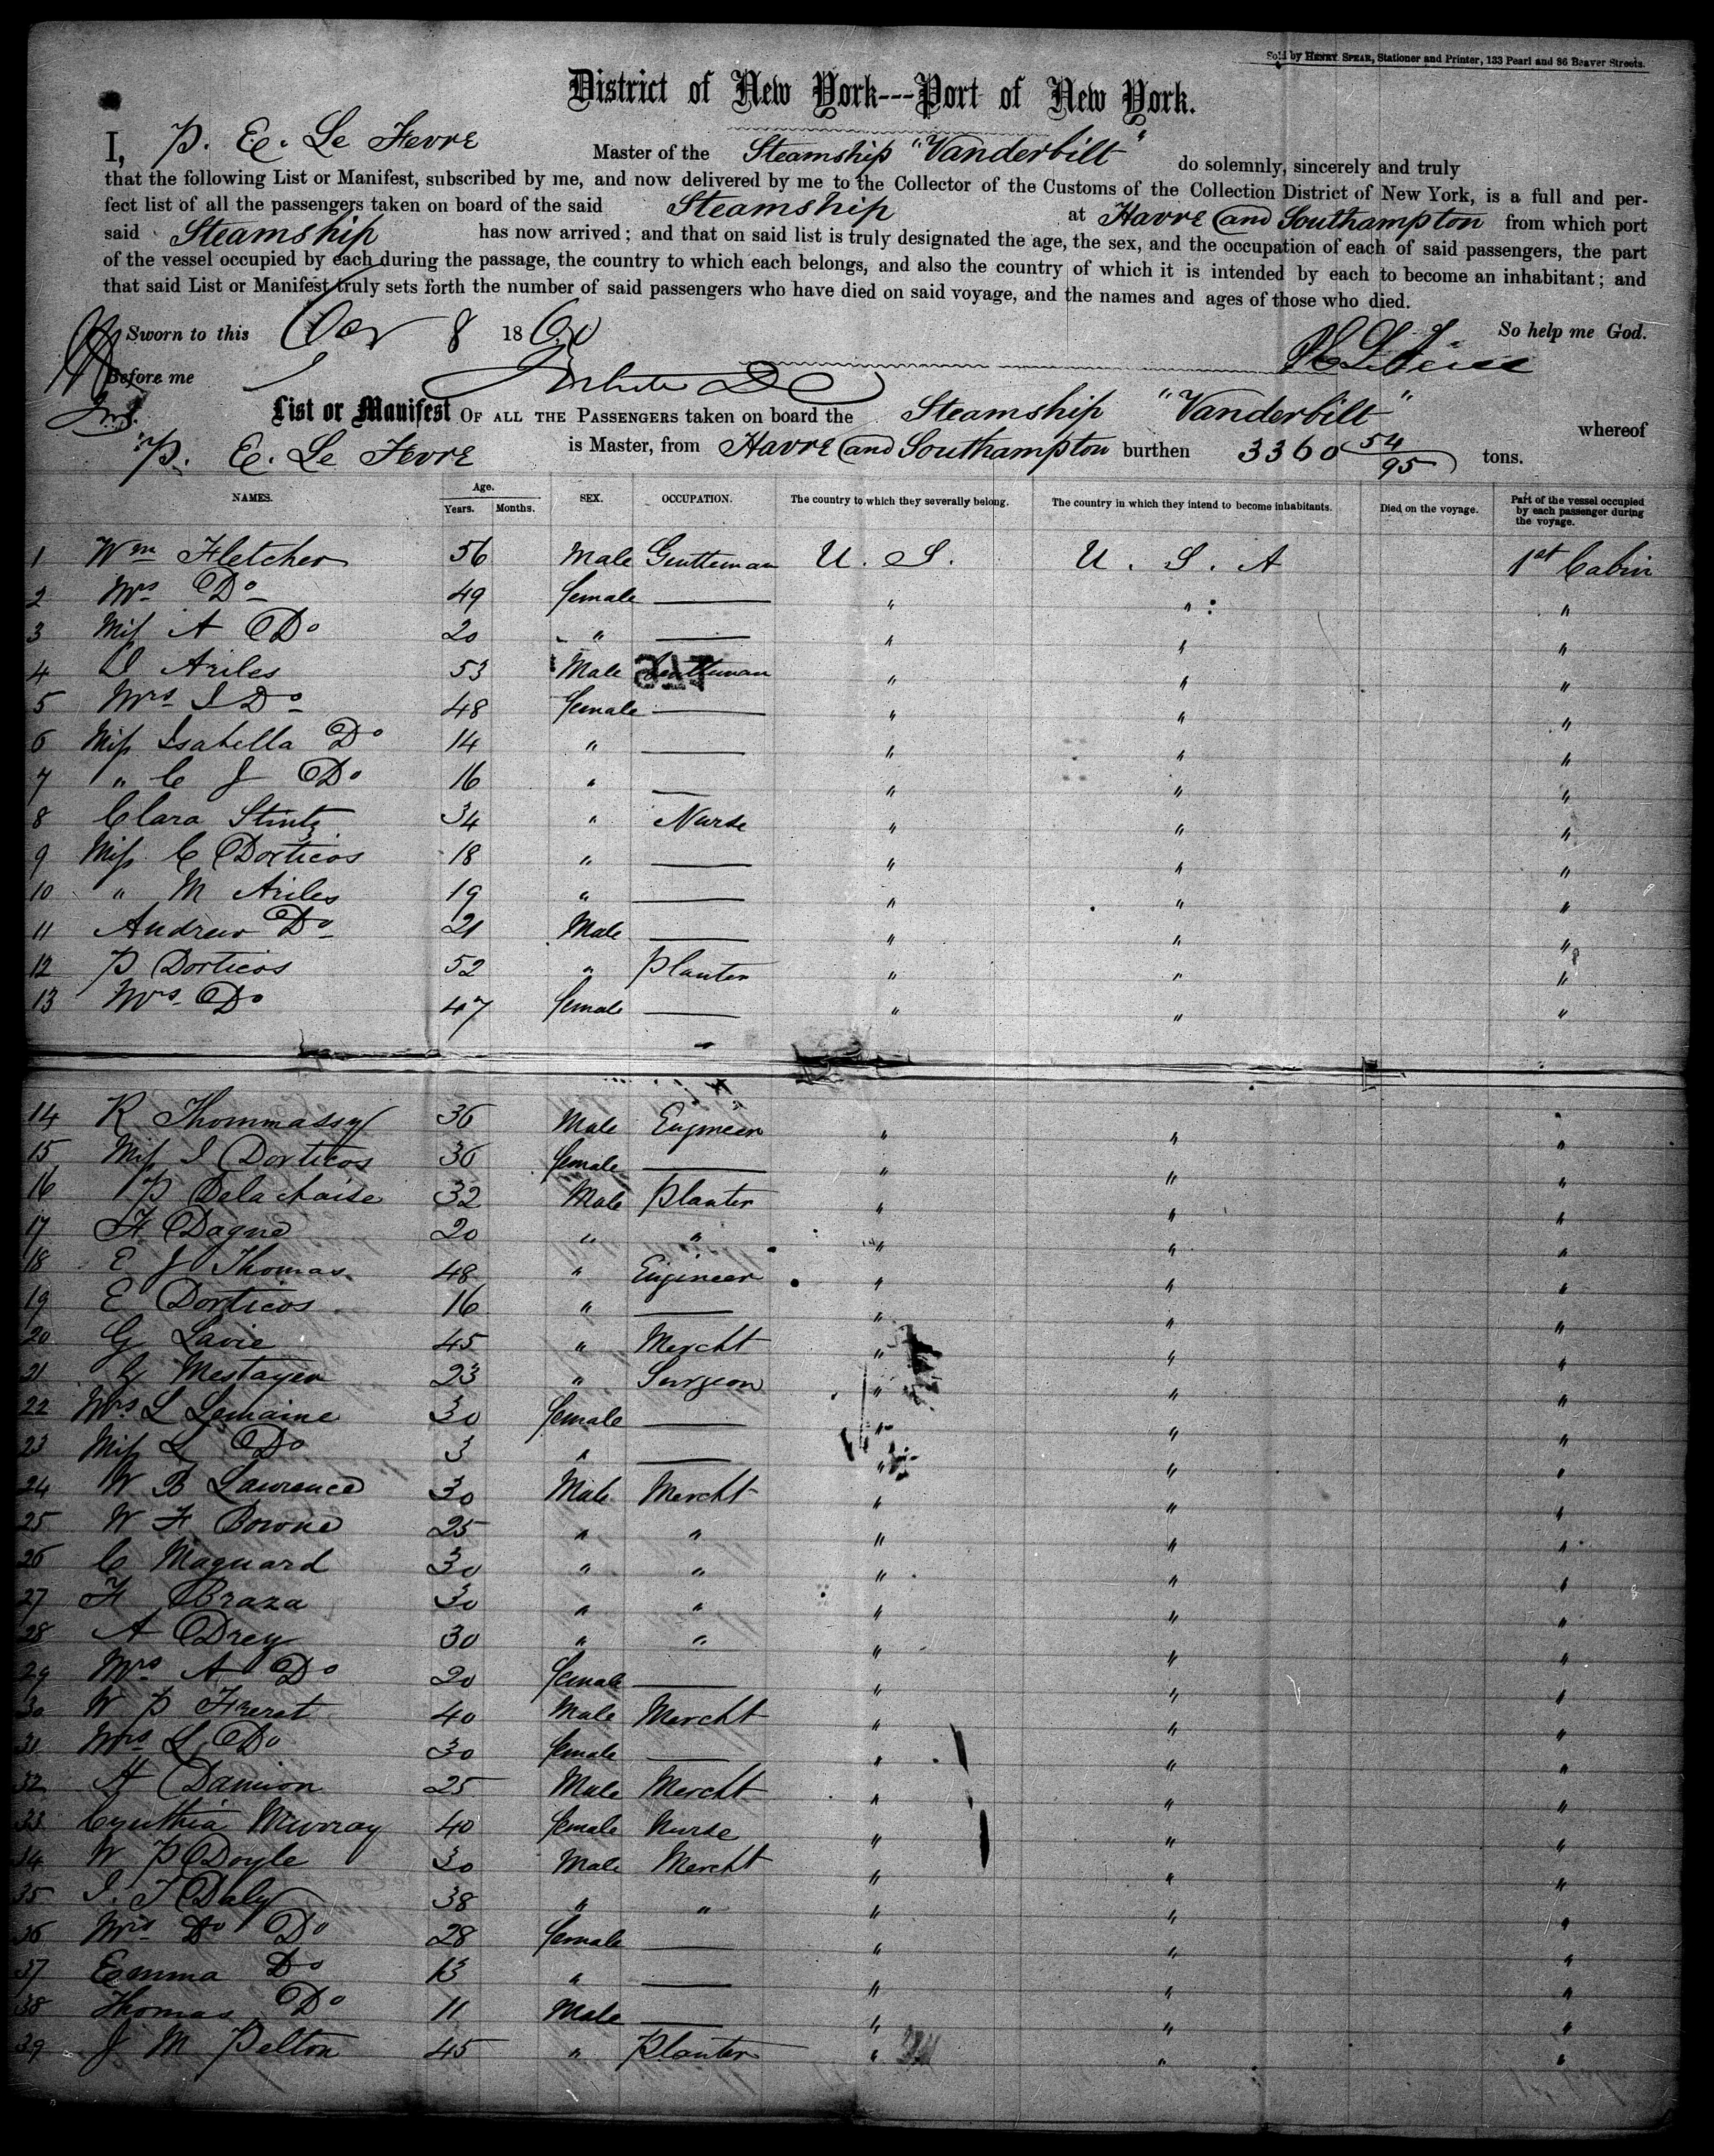 Sold by HENRY SPEAR, Stationer and Printer, 133 Pearl and 86 Beaver Streets.
District of New York---Port of New York.
I, P. E. Le Fevre Master of the Steamship "Vanderbilt" do solemnly, sincerely and truly
that the following List or Manifest, subscribed by me, and now delivered by me to the Collector of the Customs of the Collection District of New York, is a full and per-
fect list of all the passengers taken on board of the said Steamship at Havre and Southampton from which port
said Steamship has now arrived; and that on said list is truly designated the age, the sex, and the occupation of each of said passengers, the part
of the vessel occupied by each during the passage, the country to which each belongs, and also the country of which it is intended by each to become an inhabitant; and
that said List or Manifest truly sets forth the number of said passengers who have died on said voyage, and the names and ages of those who died.
Sworn to this 8 1860 So help me God.
Before me
List or Manifest OF ALL THE PASSENGERS taken on board the Steamship "Vanderbilt" whereof
P. E. Le Fevre is Master, from Havre and Southampton burthen 3360 54/95 tons.
NAMES. Age. Years. Months. SEX. OCCUPATION. The country to which they severally belong. The country in which they intend to become inhabitants. Died on the voyage. Part of the vessel occupied by each passenger during the voyage.
1 Wm Fletcher 56 Male Gentleman U. S. U. S. A 1st Cabin
2 Mrs Do 49 female — " " "
3 Miss A Do 20 " — " " "
4 I Ariles 53 Male Gentleman " " "
5 Mrs I Do 48 female — " " "
6 Miss Isabella Do 14 " — " " "
7 " C J Do 16 " — " " "
8 Clara Stintz 34 " Nurse " " "
9 Miss C Dorticos 18 " — " " "
10 " M Ariles 19 " — " " "
11 Andrew Do 21 Male — " " "
12 P Dorticos 52 " Planter " " "
13 Mrs Do 47 female — " " "
14 R Thommassy 36 Male Engineer " " "
15 Miss I Dorticos 36 female — " " "
16 P Delachaise 32 Male Planter " " "
17 F Dagne 20 " " " " "
18 E J Thomas 48 " Engineer " " "
19 E Dorticos 16 " — " " "
20 G Lavie 45 " Mercht " " "
21 G Mestayer 23 " Surgeon " " "
22 Mrs L Lemaine 30 female — " " "
23 Miss L Do 3 " — " " "
24 W B Lawrence 30 Male Mercht " " "
25 W F Bowne 25 " " " " "
26 C Maguard 30 " " " " "
27 F Braza 30 " " " " "
28 A Drey 30 " " " " "
29 Mrs A Do 20 female — " " "
30 W P Freret 40 Male Mercht " " "
31 Mrs L Do 30 female — " " "
32 A Damion 25 Male Mercht " " "
33 Cynthia Murray 40 female Nurse " " "
34 W P Doyle 30 Male Mercht " " "
35 I. T Daly 38 " " " " "
36 Mrs Do Do 28 female — " " "
37 Emma Do 13 " — " " "
38 Thomas Do 11 Male — " " "
39 J M Pelton 45 " Planter " " "